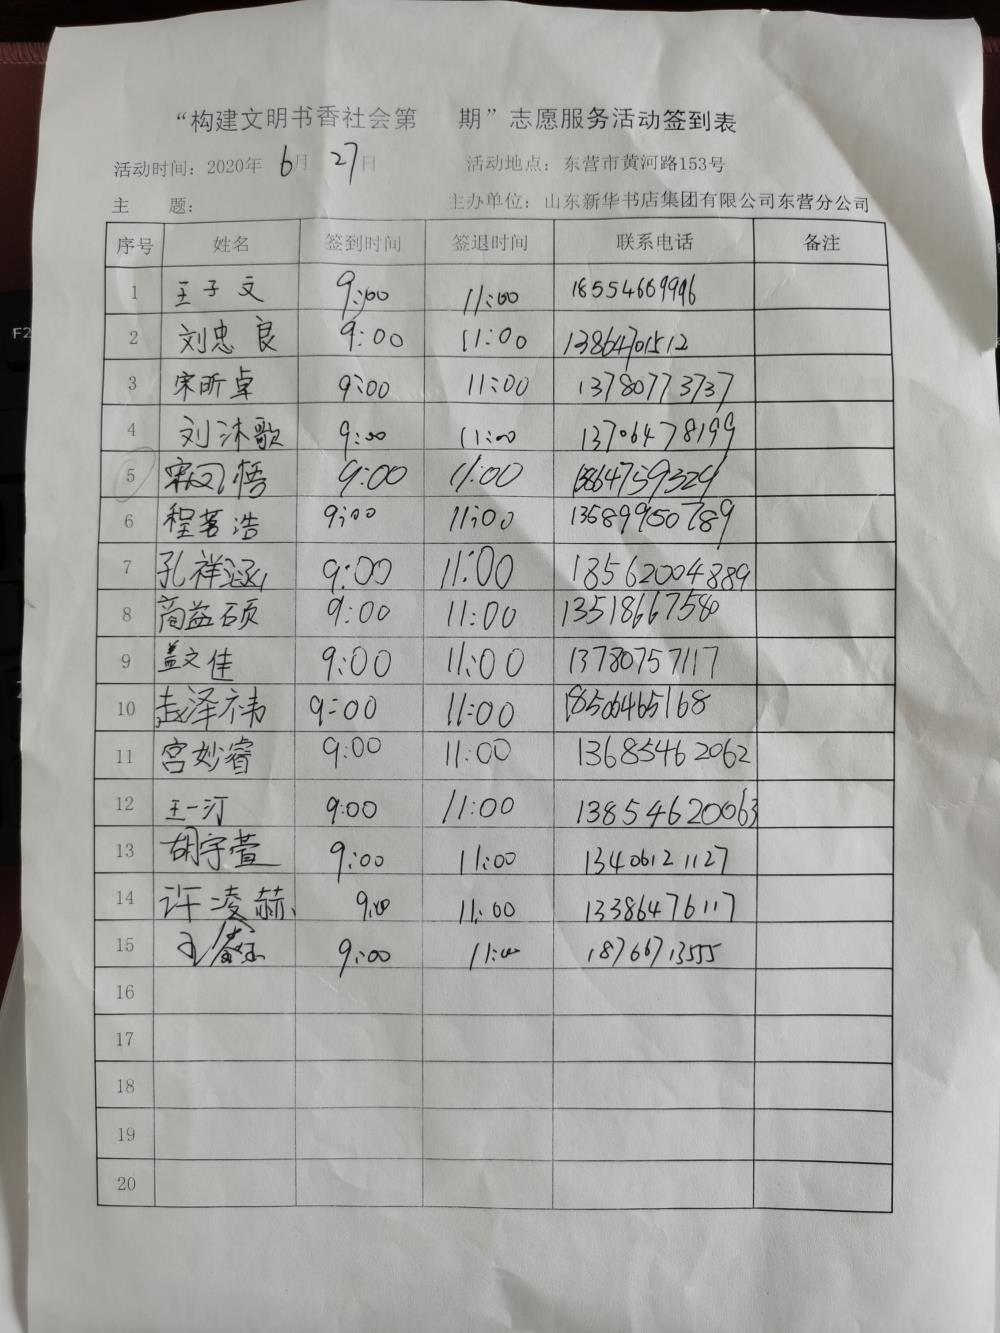 “构建文明书香社会第 期”志愿服务活动签到表
活动时间：2020年 6月 27日 活动地点：东营市黄河路153号
主 题： 主办单位：山东新华书店集团有限公司东营分公司
序号 姓名 签到时间 签退时间 联系电话 备注
1 王子文 9:00 11:00
2 刘忠良 9:00 11:00 13864701512
3 宋昕卓 9:00 11:00 13780773737
4 刘沐歌 9:00 11:00 13706478199
5 9:00 11:00 13864759329
6 程茗浩 9:00 11:00 13589950789
7 孔祥涵 9:00 11:00 18562004889
8 商益硕 9:00 11:00 13518667580
9 盖文佳 9:00 11:00 13780757117
10 赵泽祎 9:00 11:00 18506465168
11 宫妙睿 9:00 11:00 13685462062
12 王一汀 9:00 11:00 13854620063
13 胡宇萱 9:00 11:00 13406121127
14 许凌赫 9:00 11:00 13386476117
15 9:00 11:00 18766713555
16
17
18
19
20
F2